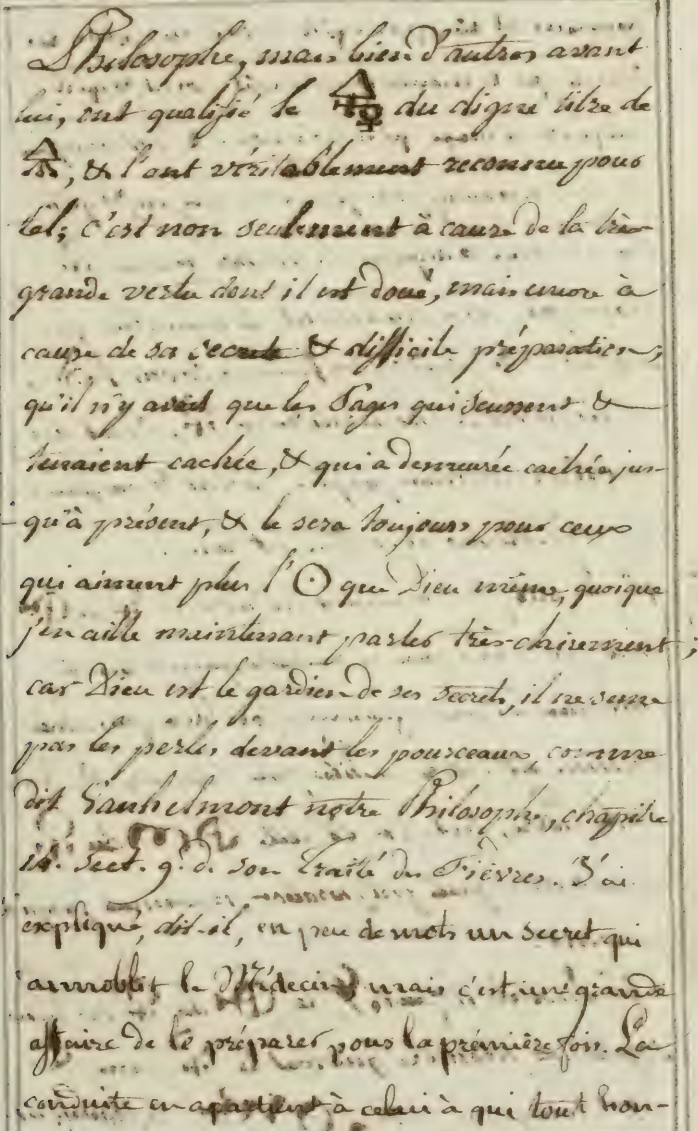 Philosophe, mais bien d'autres avant
lui, ont qualifié le 🜍☿ du digne titre de
🜍, & l'ont véritablement reconnu pour
tel; c'est non seulement à cause de la très
grande vertu dont il est doué, mais encore à
cause de sa secrete & difficile préparation,
qu'il n'y avait que les Sages qui sceussent &
tenaient cachée, & qui a demeurée cachée jus-
qu'à présent, & le sera toujours pour ceux
qui aiment plus l'☉ que Dieu même, quoique
j'en aille maintenant parler très-clairement;
car Dieu est le gardien de ses secrets, il ne seme
pas les perles devant les pourceaux, comme
dit Vanhelmont notre Philosophe, chapitre
14. sect. 9. d. son Traité des Fièvres. J'ai
expliqué, dit-il, en peu de mots un secret qui
annoblit le Médecin, mais c'est une grande
affaire de le préparer pour la prémière fois. La
conduite en apartient à celui à qui tout hon-